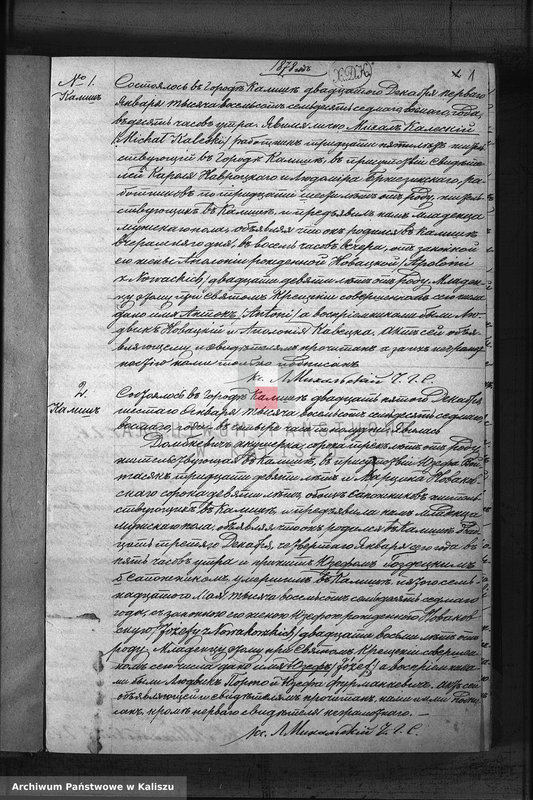 1878 годъ
1
№ 1.
Калишъ
Состоялось въ городѣ Калишѣ двадцатаго Декабря перваго
Января тысяча восемьсотъ семьдесятъ седьмаго восьмаго года,
въ десять часовъ утра. Явился лично Михалъ Калескій
/Michał Kaleski/ работникъ тридцати пяти лѣтъ
ствующій въ городѣ Калишѣ, въ присутствіи Свидѣте
лей Кароля Навроцкаго и Людоміра ра
ботниковъ по тридцати шести лѣтъ отъ роду, житель
ствующихъ въ Калишѣ, и предъявилъ намъ младенца
мужескаго пола, объявляя что онъ родился въ Калишѣ
вчерашняго дня, въ восемь часовъ вечера, отъ законной
его жены Аполоніи рожденной Новацкой /Apolonii
z Nowackich/ двадцати девяти лѣтъ отъ роду. Младен
цу этому при Святомъ Крещеніи совершенномъ сего числа
дано имя Антонъ /Antoni/ а воспріемниками были Лю
двикъ Новацкій и Аполонія Кавецка. Актъ сей объя
вляющему и свидѣтелямъ прочитанъ, а за ихъ неграмот
ностію нами только подписанъ
кс. Л Михальскій Ч. Г. С.
2.
Калишъ
Состоялось въ городѣ Калишѣ двадцать пятаго Декабря
шестаго Января тысяча восемьсотъ семьдесятъ седьмаго,
восьмаго года, въ четыре часа по полудни. Явилась
акушерка, сорока трехъ лѣтъ отъ роду,
жительствующая въ Калишѣ, въ присутствіи Юзефа
тридцати девяти лѣтъ и Марцина Новаков
скаго сорока девяти лѣтъ обоихъ сапожниковъ житель
ствующихъ въ Калишѣ и предъявила намъ младенца
мужескаго пола, объявляя что онъ родился въ Калишѣ двад
цать третьяго Декабря, четвертаго Января сего года въ
пять часовъ утра и прижитъ Юзефомъ
сапожникомъ умершимъ въ Калишѣ
надцатаго Мая тысяча восемьсотъ семьдесятъ седьмаго
года, съ законною его женою Юзефою рожденною Новаков
скою /Józefy z Nowakowskich/ двадцати восьми лѣтъ отъ
роду. Младенцу этому при Святомъ Крещеніи совершен
номъ сего числа дано имя Юзефъ /Józef/ а воспріемника
ми были Людвикъ и Юзефа Фурманкевичъ. Актъ сей
объявляющей и свидѣтелямъ прочитанъ, нами и ими подпи
санъ, кромѣ перваго свидѣтеля неграмотнаго.
кс. Л Михальскій Ч. Г. С.
Archiwum Państwowe w Kaliszu